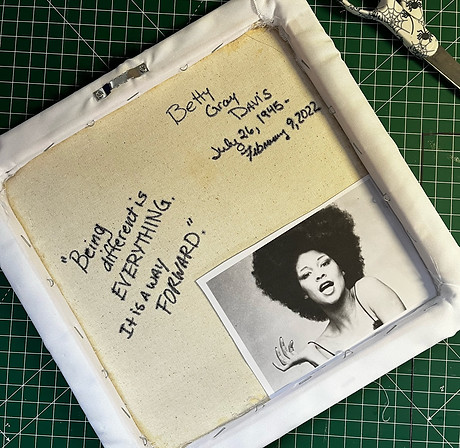 Betty
Gray
DAVIS
July 26, 1945-
February 9, 2022
"Being
different is
EVERYTHING.
It is a way
FORWARD."